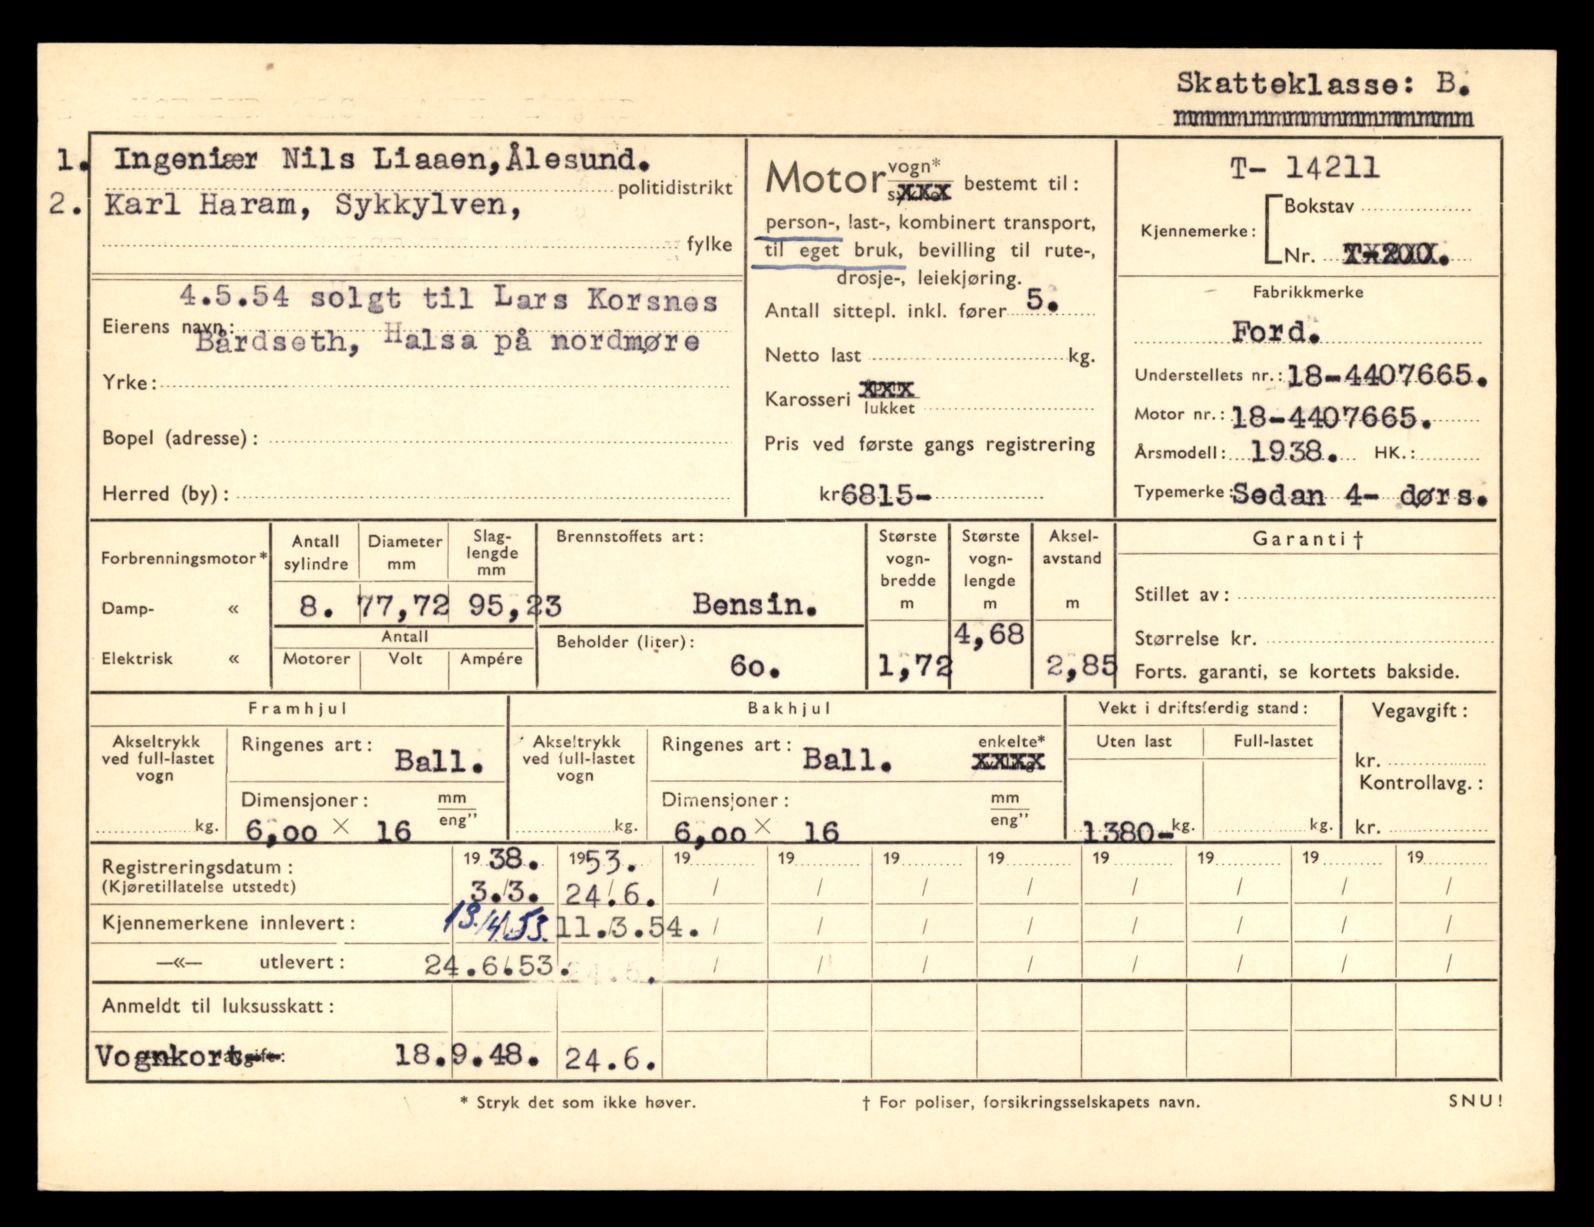 Skatteklasse: B.
1. Ingeniær Nils Liaaen, Ålesund.
politidistrikt
2. Karl Haram, Sykkylven,
fylke
4.5.54 solgt til Lars Korsnes
Eierens navn:
Bårdseth, Halsa på nordmøre
Yrke:
Bopel (adresse):
Herred (by):
Motor vogn* bestemt til:
person-, last-, kombinert transport,
til eget bruk, bevilling til rute-,
drosje-, leiekjøring.
Antall sittepl. inkl. fører 5.
Netto last kg.
Karosseri lukket
Pris ved første gangs registrering
kr 6815-
T- 14211
Kjennemerke: Bokstav
Nr. T-200.
Fabrikkmerke
Ford.
Understellets nr.: 18-4407665.
Motor nr.: 18-4407665.
Årsmodell: 1938. HK.:
Typemerke: Sedan 4- dørs.
Forbrenningsmotor*
Damp- «
Elektrisk «
Antall sylindre
8.
Diameter mm
77,72
Slag-
lengde
mm
95,23
Antall
Motorer Volt Ampére
Brennstoffets art:
Bensin.
Beholder (liter):
60.
Største
vogn-
bredde
m
1,72
Største
vogn-
lengde
m
4,68
Aksel-
avstand
m
2,85
Garanti †
Stillet av:
Størrelse kr.
Forts. garanti, se kortets bakside.
Framhjul
Akseltrykk
ved full-lastet
vogn
kg.
Ringenes art: Ball.
Dimensjoner: mm
eng"
6,00 × 16
Bakhjul
Akseltrykk
ved full-lastet
vogn
kg.
Ringenes art: Ball. enkelte*
xxxx
Dimensjoner: mm
eng"
6,00 × 16
Vekt i driftsferdig stand:
Uten last Full-lastet
1380- kg. kg.
Vegavgift:
kr.
Kontrollavg.:
kr.
Registreringsdatum: 19 38. 19 53. 19 19 19 19 19 19 19 19
(Kjøretillatelse utstedt) 3./3. 24/.6. / / / / / / / /
Kjennemerkene innlevert: 13./4. 53. 11./3.54. / / / / / / / /
—«— utlevert: 24.6.53. 24.6. / / / / / / / /
Anmeldt til luksusskatt:
Vognkort-- 18.9.48. 24.6.
* Stryk det som ikke høver. † For poliser, forsikringsselskapets navn. SNU!